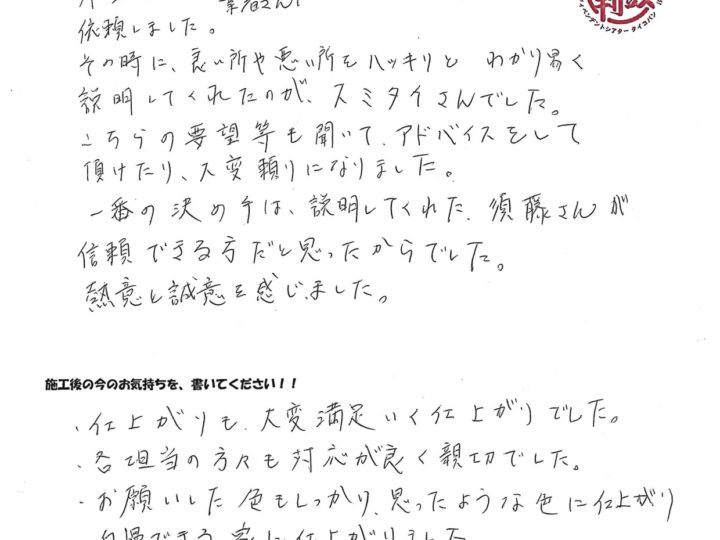 業者さんに
依頼しました。
その時に、良い所や悪い所をハッキリと わかり易く
説明してくれたのが、スミタイさんでした。
こちらの要望等も聞いて、アドバイスをして
頂けたり、大変頼りになりました。
一番の決め手は、説明してくれた、須藤さんが
信頼できる方だと思ったからでした。
熱意と誠意を感じました。
施工後の今のお気持ちを、書いてください！！
・仕上がりも、大変満足いく仕上がりでした。
・各担当の方々も対応が良く親切でした。
・お願いした色もしっかり、思ったような色に仕上がり
自慢できる家に仕上がりました